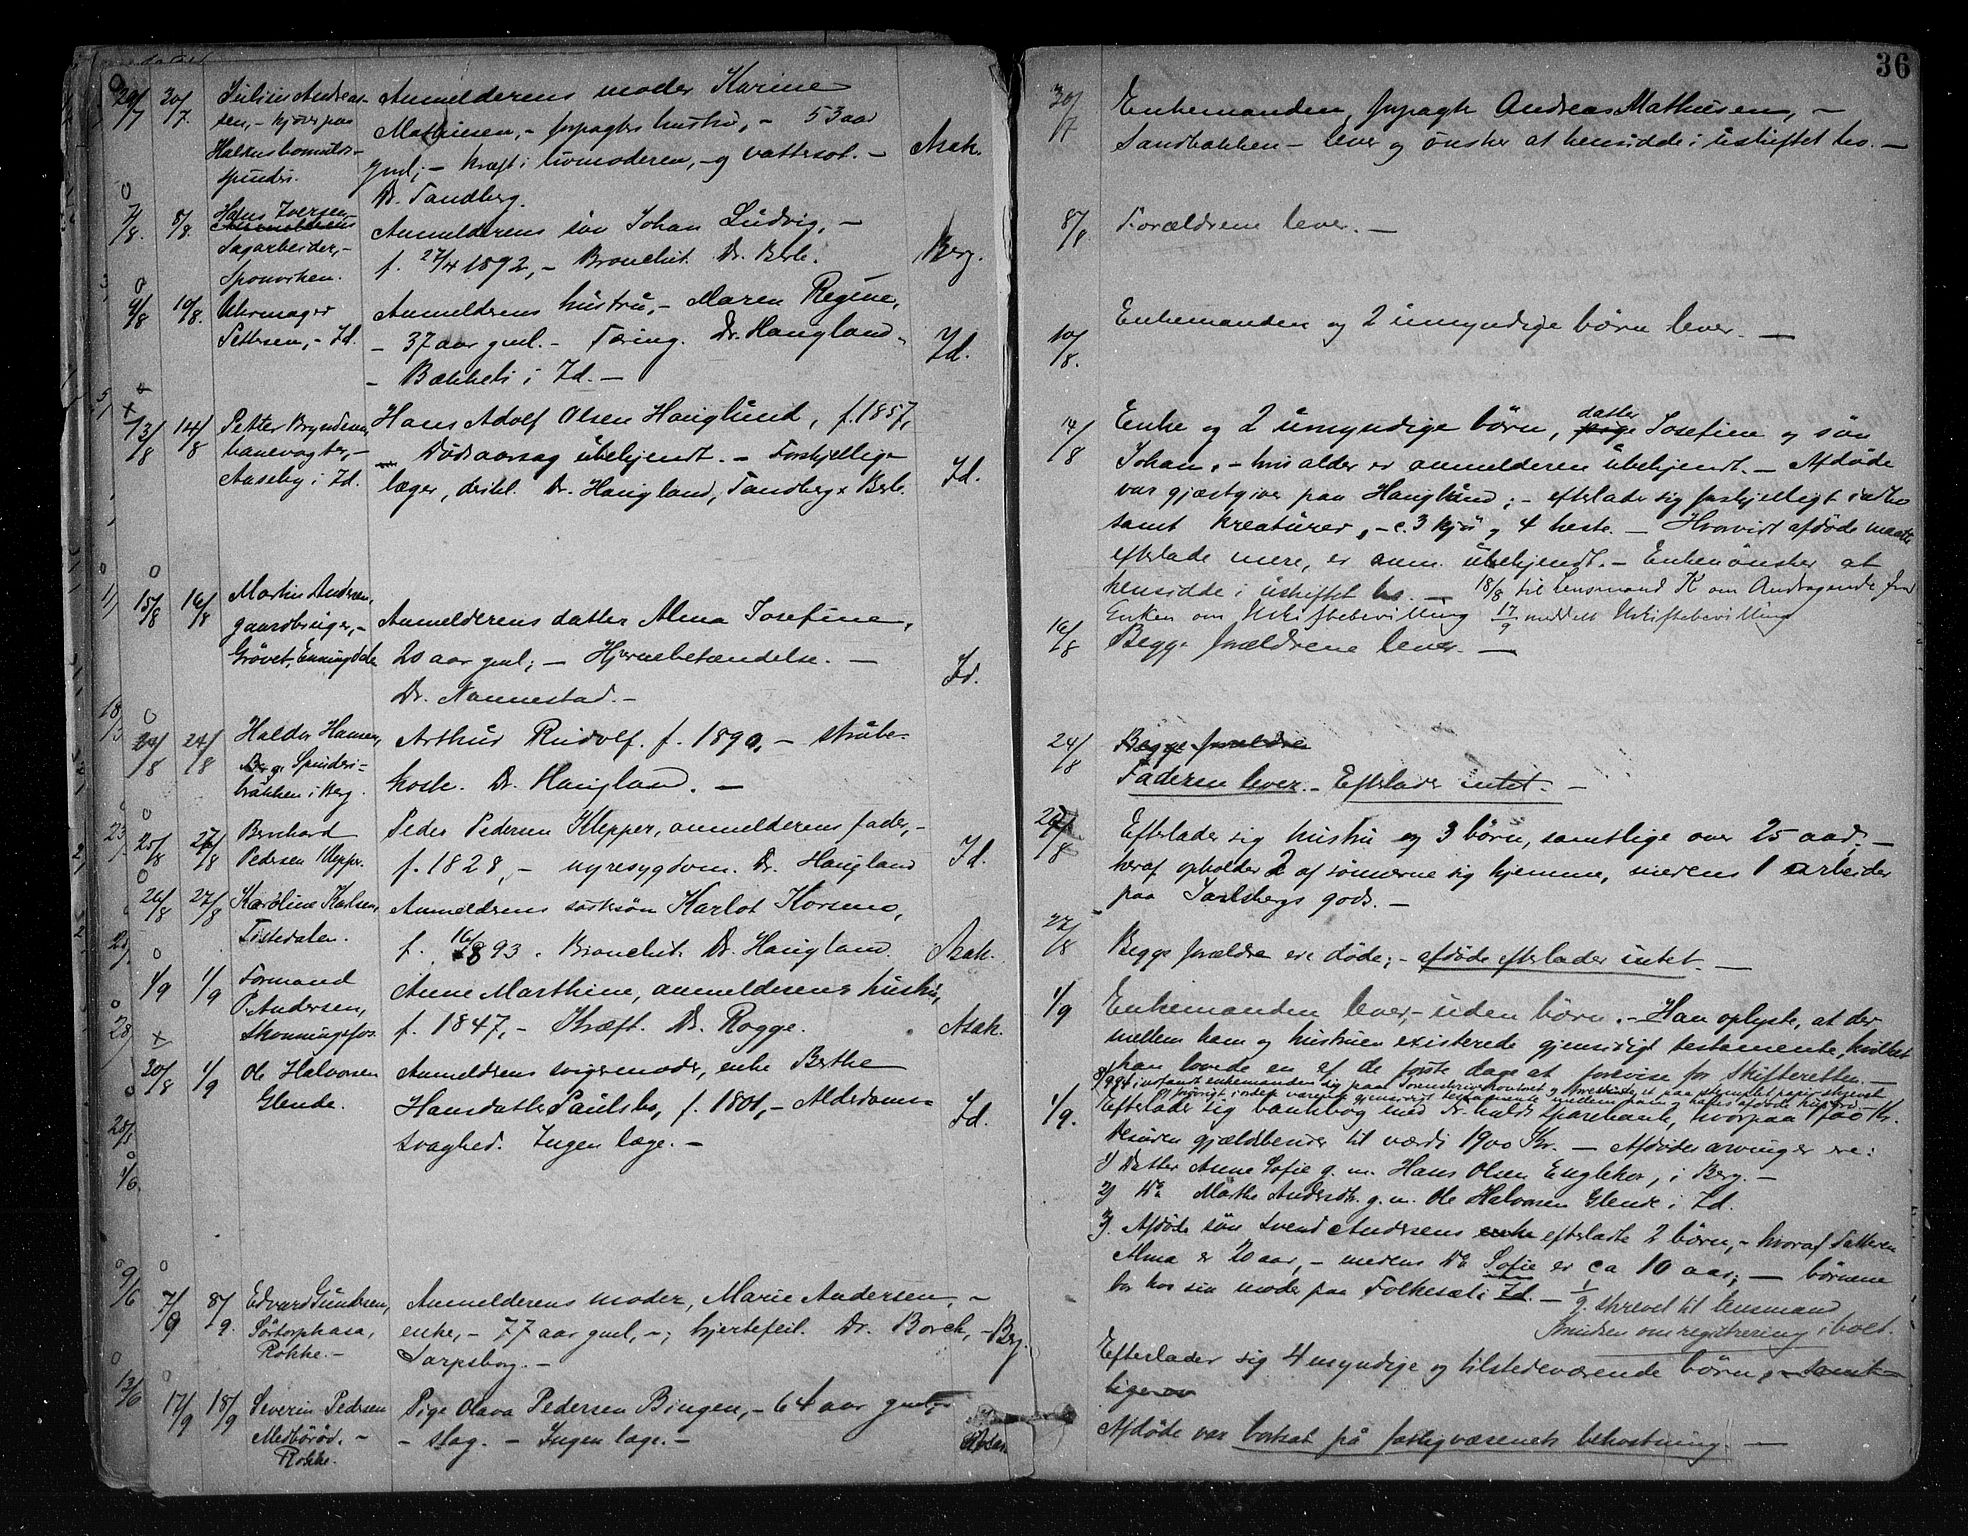 36
29/7 30/7. Julius Andrea-
sen,
Anmelderens moder Karine
Mathiesen, – forpagters hustru, – 53 aar
gml; – kræft i livmoderen, – og vattersot. –
Dr. Tandberg.
Asak.
30/7 Enkemanden, forpagtr Andreas Mathiesen, –
Sandbakken – lever og ønsker at hensidde i uskiftet bo. –
7/8. 8/8. Hans Iversen
Sagarbeider, –
Sponviken.
Anmelderens søn Johan Ludvig, –
f. 27/4 1892, – Bronchit. Dr. Berle.
Berg.
8/8 Forældrene lever. –
9/8 10/8. Uhrmager
Pettersen, – Id.
Anmelderens hustru, – Maren Regine,
– 37 aar gml. – Tæring. Dr. Haugland
– Bækkels i Id. –
Id.
10/8. Enkemanden og 2 umyndige børn lever. –
13/8 14/8 Petter Bryndsen
banevogter, –
Aaseby i Id.
Hans Adolf Olsen Hauglund, f. 1857,
– Dødsaarsag ubekjendt. – Forskjellige
læger, deribl. Dr. Haugland, Tandberg & Berle.
Id.
14/8 Enke og 2 umyndige børn, datter Josefine og søn
Johan, – hvis alder er anmelderen ubekjendt. – Afdøde
var gjæstgiver paa Hauglund; – efterlader sig forskjelligt indbo
samt kreaturer, – c. 3 kjør og 4 heste. – Hvorvidt afdøde maatte
efterlade mere, er anm. ubekjendt. – Enken ønsker at
hensidde i uskiftet bo. – 18/8 til Lensmand K om Andragende fra
Enken om Uskiftebevilling 17/9 meddelt Uskiftebevilling
15/8 16/8 Martin Andersen,
gaardbruger, –
Grøvet, Enningdalen
Anmelderens datter Alma Josefine,
20 aar gml; – Hjernebetændelse. –
Dr. Nannestad. –
Id.
16/8 Begge forældrene lever. –
24/8 24/8 Haldor Hansen,
Spinderi-
bakken i Berg.
Arthur Rudolf. f. 1890, – strube-
hoste. Dr. Haugland. –
24/8 Begge forældre
Faderen lever. – Efterlader intet. –
25/8 27/8 Bernhard
Pedersen Klepper.
Peder Pedersen Klepper, anmelderens fader, –
f. 1828, – nyresygdom. Dr. Haugland
Id.
27/8 Efterlader sig hustru og 3 børn, samtlige over 25 aar. –
heraf opholder 2 af sønnerne sig hjemme, medens 1 arbeider
paa Jarlsbergs gods. –
26/8 27/8 Karoline Karlsen,
Tistedalen.
Anmelderens søstersøn Karlot Korsmo,
f. 16/8 93. Bronchit. Dr. Haugland.
Asak.
27/8 Begge forældre ere døde; – afdøde efterlader intet. –
1/9 1/9 Formand
P. Andersen,
Skonningsfos
Anne Marthine, anmelderens hustru,
f. 1847, – Kræft. Dr. Rogge.
Asak.
1/9 Enkemanden lever, – uden børn. – Han oplyste, at der
mellem ham og hustruen existerede gjensidigt testamente, hvilket
han lovede en af de første dage at forevise for Skifteretten. –
20/8 1/9 Ole Halvorsen
Glende.
Anmelderens svigermoder, enke Berthe
Hansdatter Paulsbo, f. 1801, – Alderdoms-
svaghed. Ingen læge. –
Id.
1/9. Efterlader sig bankbog med Fr.halds Sparebank, hvorpaa Kr.
desuden gjældsbreve til værdi 1900 Kr. – Afdødes arvinger ere:
1) Datter Anne Sofie g. m. Hans Olsen Englekor, i Berg. –
2) Do Marthe Andersdtr. g. m. Ole Halvorsen Glende i Id.
3) Afdøde søn Svend Andersens enke efterladte 2 børn, – hvoraf datteren
Alma er 20 aar, – medens Do Sofie er ca 10 aar; – børnene
bor hos sin moder paa Folkesæt i Id. – 1/9 skrevet til lensmand
Knudsen om registrering i boet.
7/9 8/9. Edvard Gundersen,
Rokke. –
Anmelderens moder, Marie Andersen, –
enke, – 77 aar gml, –; hjertefeil. Dr. Borch, –
Sarpsborg. –
Berg.
Efterlader sig 4 myndige og tilstedeværende børn, – samt-
lige
17/9 18/9 Severin Pedersen
Medbørød. –
Rokke.
Pige Olava Pedersen Bingen, – 64 aar gml,
– slag. – Ingen læge. –
Afdøde var bortsat på fattigvæsenets bekostning. –